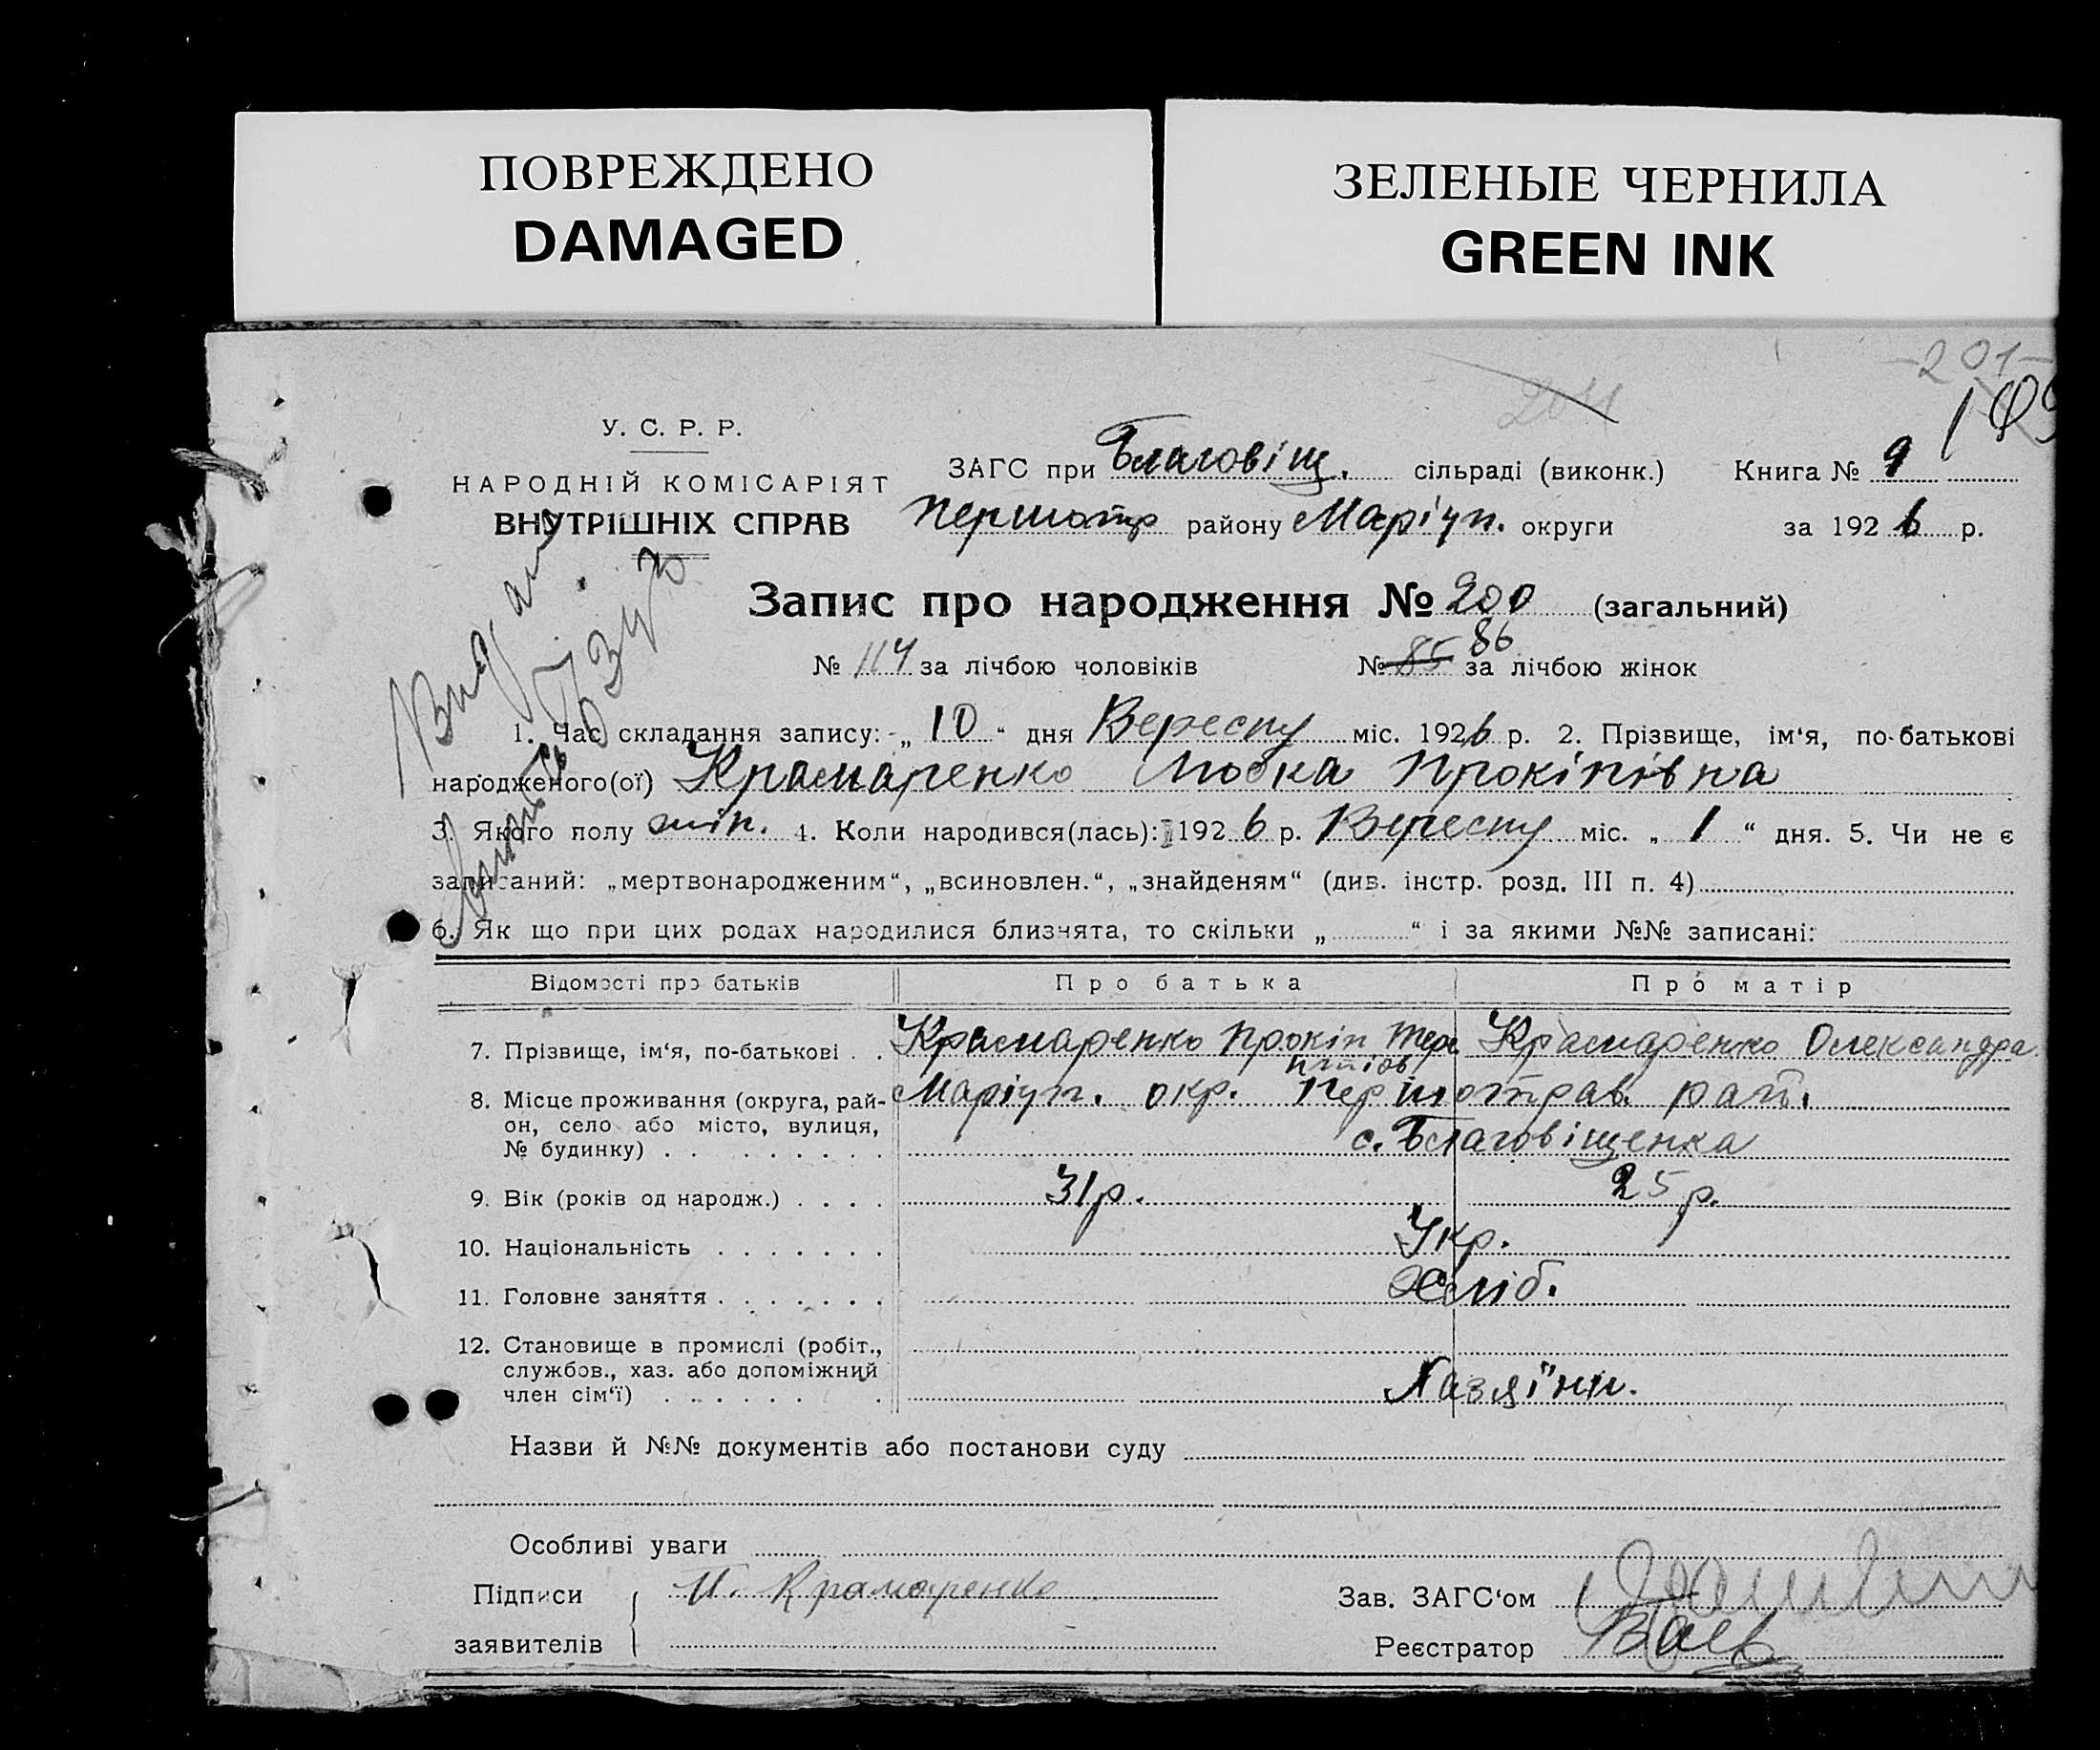 ПОВРЕЖДЕНО
DAMAGED
ЗЕЛЕНЫЕ ЧЕРНИЛА
GREEN INK
201
У. С. Р. Р.
НАРОДНІЙ КОМІСАРІЯТ
ВНУТРІШНІХ СПРАВ
ЗАГС при Благовіщ. сільраді (виконк.) Книга № 9
Першотр району Маріуп. округи за 1926 р.
Запис про народження № 200 (загальний)
№ 114 за лічбою чоловіків № 85 86 за лічбою жінок
1. Час складання запису: „ 10 “ дня Вересну міс. 1926 р. 2. Прізвище, ім‘я, по-батькові
народженого(ої) Крамаренко Любка Прокіпівна
3. Якого полу жін. 4. Коли народився(лась): 1926 р. Вересну міс. „ 1 “ дня. 5. Чи не є
записаний: „мертвонародженим“, „всиновлен.“, „знайденям“ (див. інстр. розд. III п. 4)
6. Як що при цих родах народилися близнята, то скільки „ “ і за якими №№ записані:
Відомості про батьків Про батька Про матір
7. Прізвище, ім‘я, по-батькові . . Крамаренко Прокіп Крамаренко Олександра
8. Місце проживання (округа, рай- Маріуп. окр. Першотрав. рай.
он, село або місто, вулиця, с. Благовіщенка
№ будинку) . . . . . . . .
9. Вік (років од народж.) . . . . 31 р. 25 р.
10. Національність . . . . . . . Укр.
11. Головне заняття . . . . . . . Хліб.
12. Становище в промислі (робіт.,
службов., хаз. або допоміжний
член сім‘ї) . . . . . . . Хазяїни.
Назви й №№ документів або постанови суду
Особливі уваги
Підписи Крамаренко Зав. ЗАГС‘ом
заявителів Реєстратор